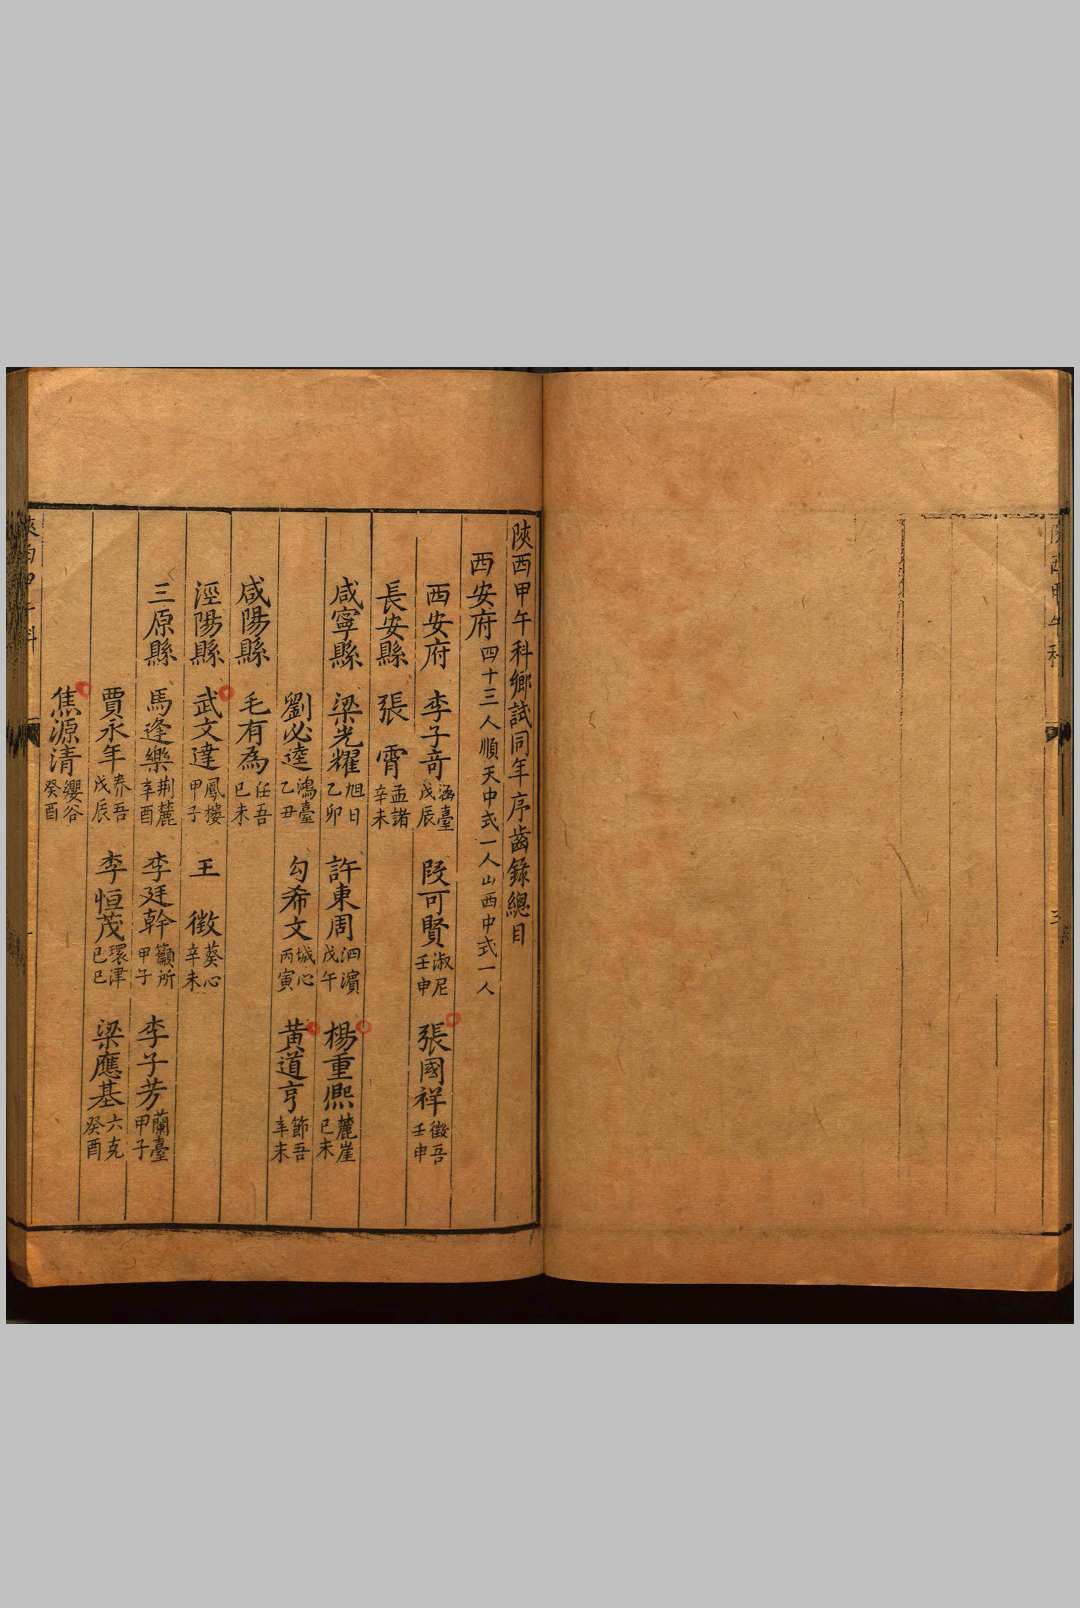 陝西甲午科鄉試同年序齒錄總目
西安府 四十三人順天中式一人山西中式一人
西安府 李子奇 涵臺 戊辰 段可賢 淑尼 壬申 張國祥 徵吾 壬申
長安縣 張霄 孟諸 辛未
咸寧縣 梁光耀 旭日 乙卯 許東周 泗濱 戊午 楊重熈 麓崖 己未
劉必逵 鴻臺 乙丑 勾希文 城心 丙寅 黃道亨 節吾 辛未
咸陽縣 毛有為 任吾 己未
涇陽縣 武文達 鳳樓 甲子 王徵 葵心 辛未
三原縣 馬逢樂 荆麓 辛酉 李廷幹 籲所 甲子 李子芳 蘭臺 甲子
賈永年 泰吾 戊辰 李恒茂 環津 己巳 梁應基 六克 癸酉
焦源清 纓谷 癸酉
陝西甲午科